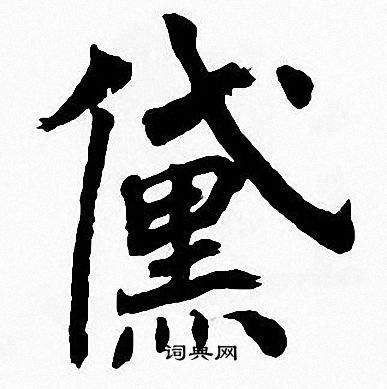 黛
词典网